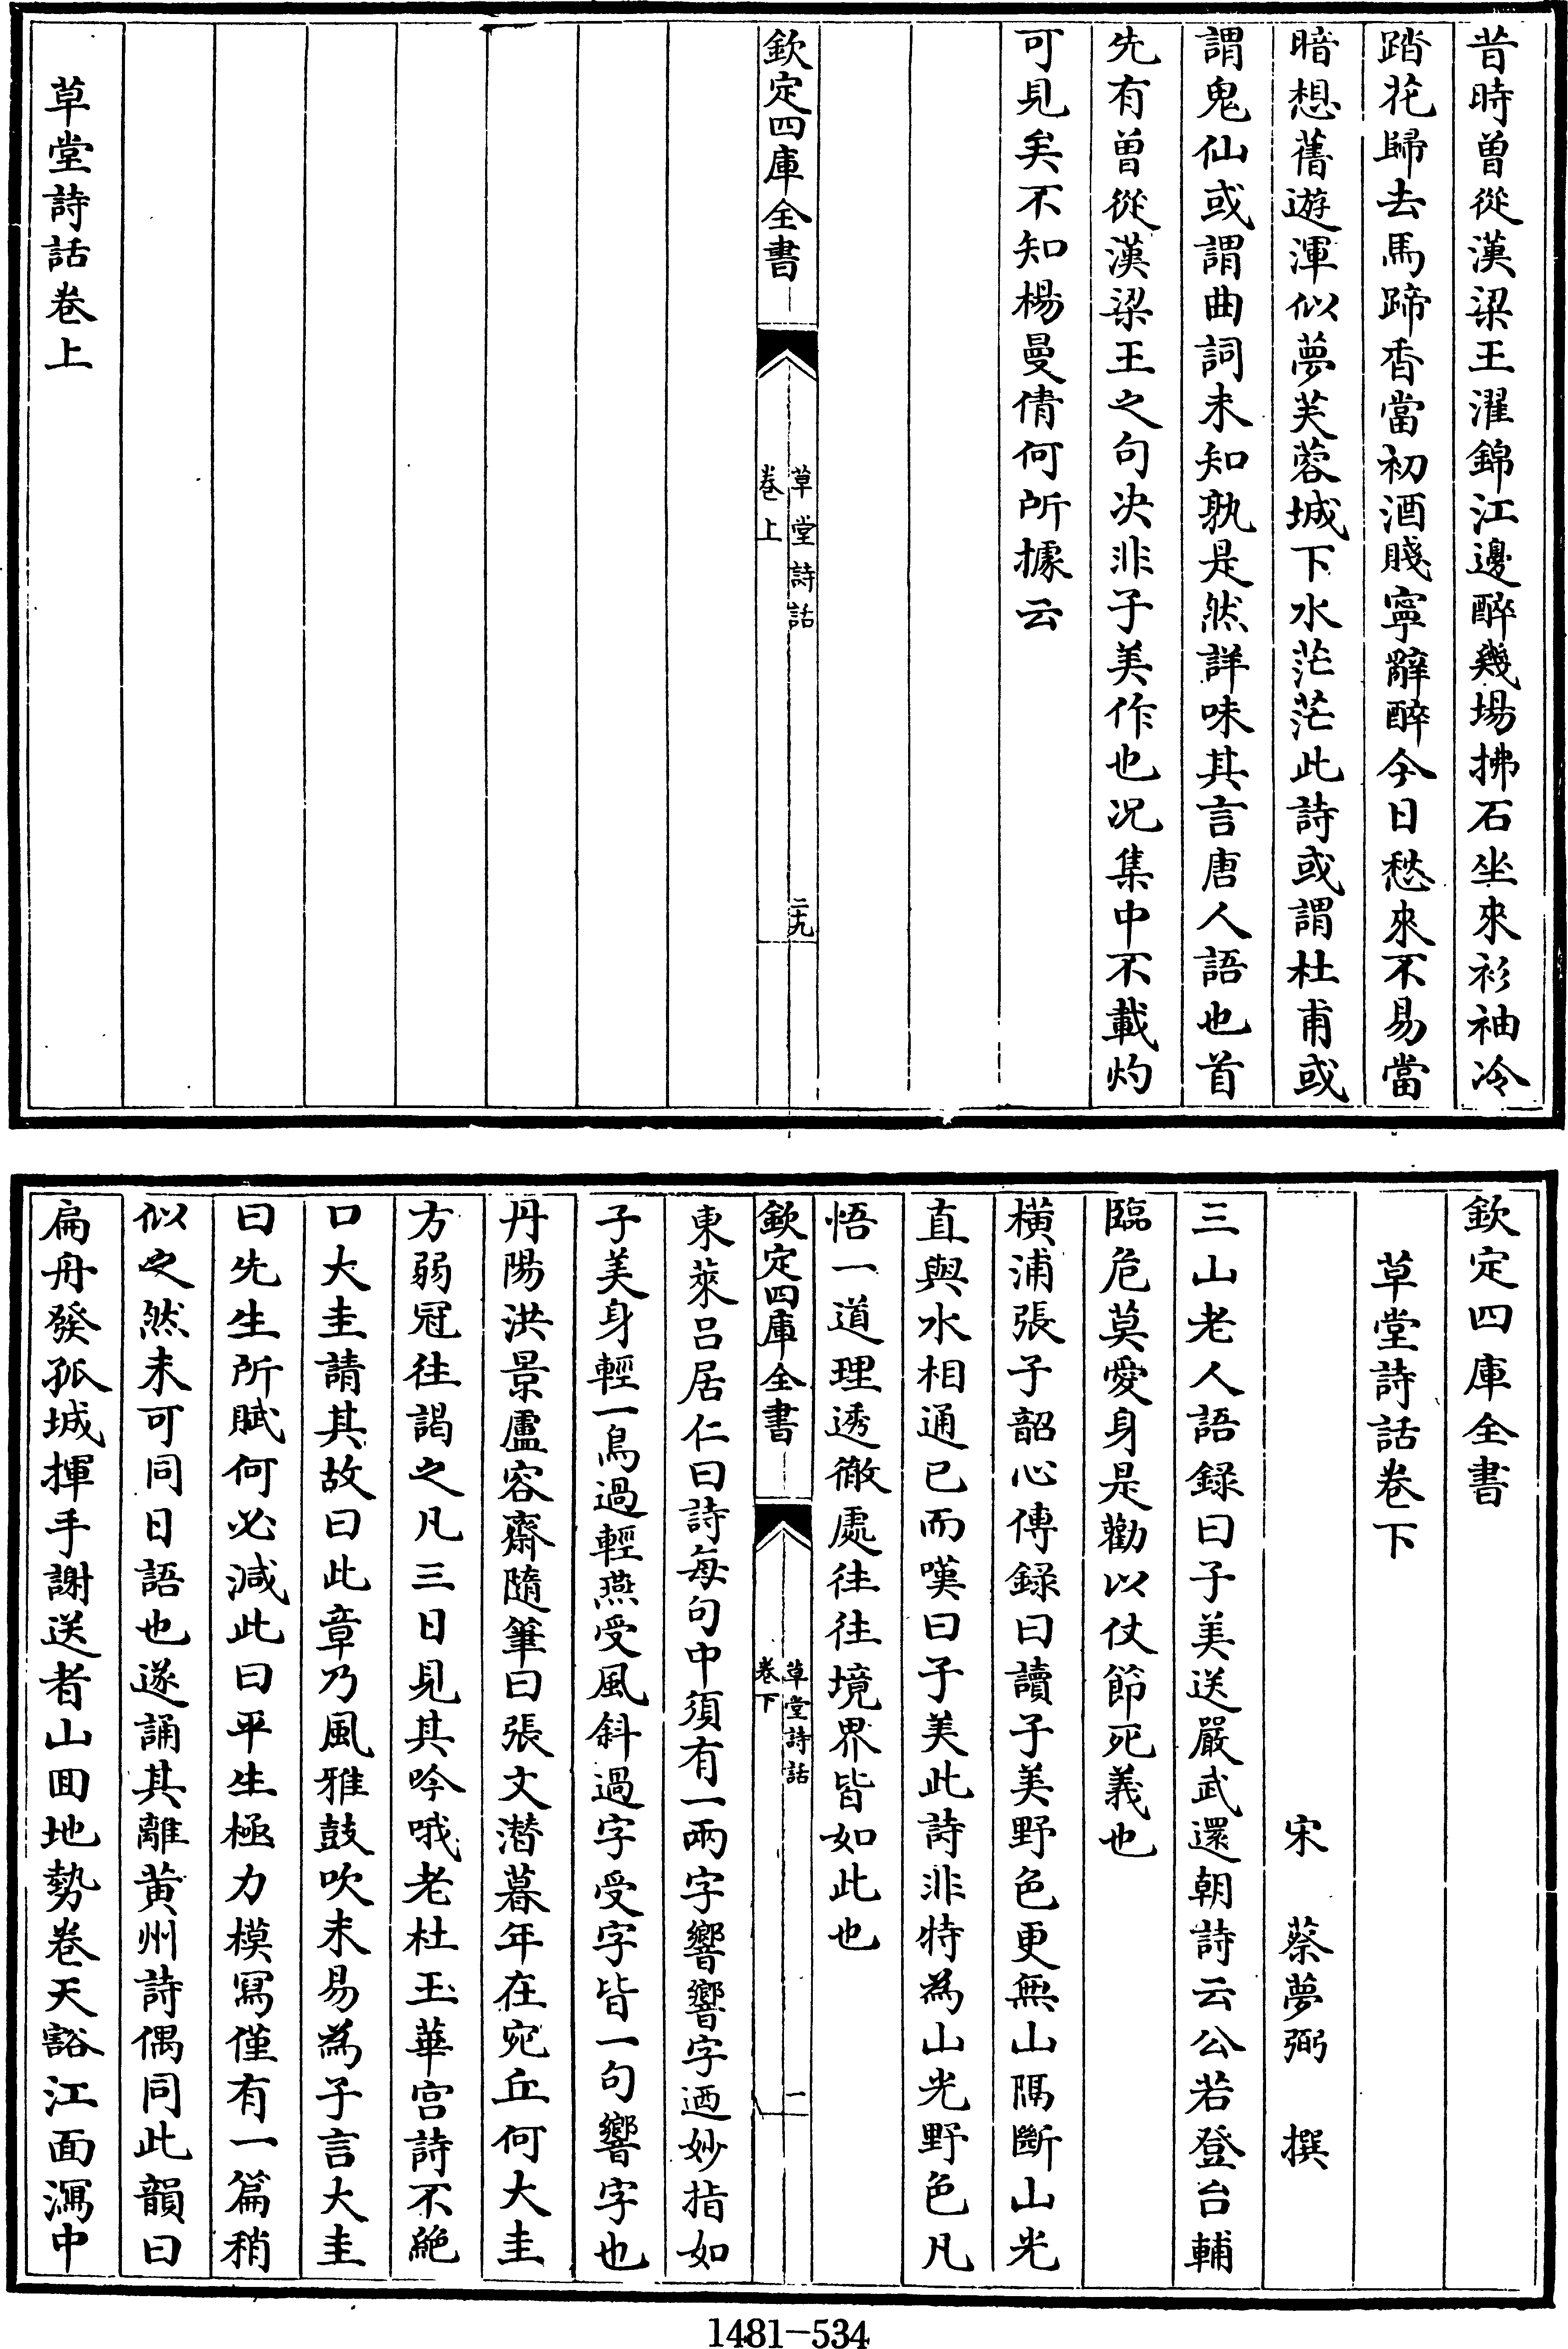 昔時曾從漢梁王濯錦江邊醉幾場拂石坐來衫袖冷
踏花歸去馬蹄香當初酒賤寧辭醉今日愁來不易當
暗想舊遊渾似夢芙蓉城下水茫茫此詩或謂杜甫或
謂鬼仙或謂曲詞未知孰是然詳味其言唐人語也首
先有曾從漢梁王之句决非子美作也况集中不載灼
可見矣不知楊曼倩何所據云
欽定四庫全書
草堂詩話
卷上
二十九
草堂詩話卷上
欽定四庫全書
草堂詩話卷下
宋 蔡夢弼 撰
三山老人語録曰子美送嚴武還朝詩云公若登台輔
臨危莫愛身是勸以仗節死義也
横浦張子韶心傳録曰讀子美野色更無山隔斷山光
直與水相通已而嘆曰子美此詩非特為山光野色凡
悟一道理透徹處往往境界皆如此也
欽定四庫全書
草堂詩話
卷下
一
東萊吕居仁曰詩每句中須有一兩字響響字迺妙指如
子美身輕一鳥過輕燕受風斜過字受字皆一句響字也
丹陽洪景盧容齋隨筆曰張文潜暮年在宛丘何大圭
方弱冠往謁之凡三日見其吟哦老杜玉華宫詩不絶
口大圭請其故曰此章乃風雅鼓吹未易為子言大圭
曰先生所賦何必減此曰平生極力模寫僅有一篇稍
似之然未可同日語也遂誦其離黄州詩偶同此韻曰
扁舟發孤城揮手謝送者山回地勢卷天豁江面瀉中
1481-534